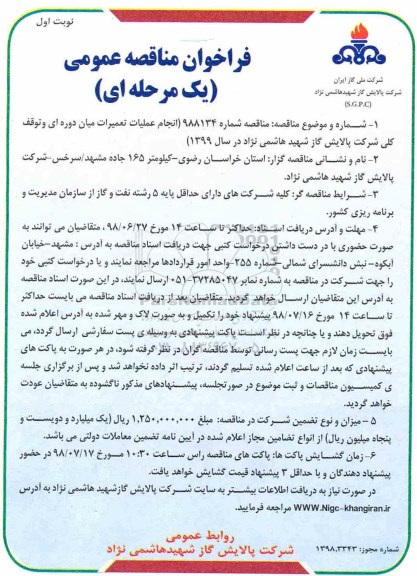 نوبت اول
شرکت ملی گاز ایران
شرکت پالایش گاز شهیدهاشمی نژاد
(S.G.P.C)
فراخوان مناقصه عمومی
(یک مرحله ای)
۱- شماره و موضوع مناقصه: مناقصه شماره ۹۸۸۱۳۴ (انجام عملیات تعمیرات میان دوره ای وتوقف
کلی شرکت پالایش گاز شهید هاشمی نژاد در سال ۱۳۹۹)
۲- نام و نشانی مناقصه گزار: استان خراسان رضوی-کیلومتر ۱۶۵ جاده مشهد/سرخس-شرکت
پالایش گاز شهید هاشمی نژاد.
۳- شرایط مناقصه گر: کلیه شرکت های دارای حداقل پایه ۵ رشته نفت و گاز از سازمان مدیریت و
برنامه ریزی کشور.
۴- مهلت و آدرس دریافت اسناد: حداکثر تا ساعت ۱۴ مورخ ۹۸/۰۶/۲۷، متقاضیان می توانند به
صورت حضوری با در دست داشتن درخواست کتبی جهت دریافت اسناد مناقصه به آدرس : مشهد-خیابان
آبکوه- نبش دانشسرای شمالی-شماره ۲۵۵-واحد امور قراردادها مراجعه نمایند و یا درخواست کتبی خود
را جهت شرکت در مناقصه به شماره نمابر ۳۷۲۸۵۰۴۷-۰۵۱ ارسال نمایند، در این صورت اسناد مناقصه
به آدرس این متقاضیان ارسال خواهد گردید. متقاضیان بعد از دریافت اسناد مناقصه می بایست حداکثر
تا ساعت ۱۴ مورخ ۹۸/۰۷/۱۶ پیشنهاد خود را تکمیل و به صورت لاک و مهر شده به آدرس اعلام شده
فوق تحویل دهند و یا چنانچه در نظر است پاکت پیشنهادی به وسیله ی پست سفارشی ارسال گردد، می
بایست زمان لازم جهت پست رسانی توسط مناقصه گران در نظر گرفته شود، در هر صورت به پاکت های
پیشنهادی که بعد از ساعت اعلام شده تسلیم گردند، ترتیب اثر داده نخواهد شد و پس از برگزاری جلسه
ی کمیسیون مناقصات و ثبت موضوع در صورتجلسه، پیشنهادهای مذکور ناگشوده به متقاضیان عودت
خواهد گردید.
۵ - میزان و نوع تضمین شرکت در مناقصه: مبلغ ۱,۲۵۰,۰۰۰,۰۰۰ ریال (یک میلیارد و دویست و
پنجاه میلیون ریال) از انواع تضامین مجاز اعلام شده در آیین نامه تضمین معاملات دولتی می باشد.
۶- زمان گشایش پاکت ها: پاکت های مناقصه راس ساعت ۱۰:۳۰ مورخ ۹۸/۰۷/۱۷ در حضور
پیشنهاد دهندگان و با حداقل ۳ پیشنهاد قیمت گشایش خواهد یافت.
در صورت نیاز به دریافت اطلاعات بیشتر به سایت شرکت پالایش گازشهید هاشمی نژاد به آدرس
www.Nigc-khangiran.ir مراجعه فرمایید.
روابط عمومی
شرکت پالایش گاز شهیدهاشمی نژاد
شماره مجوز: ۱۳۹۸,۳۳۴۳